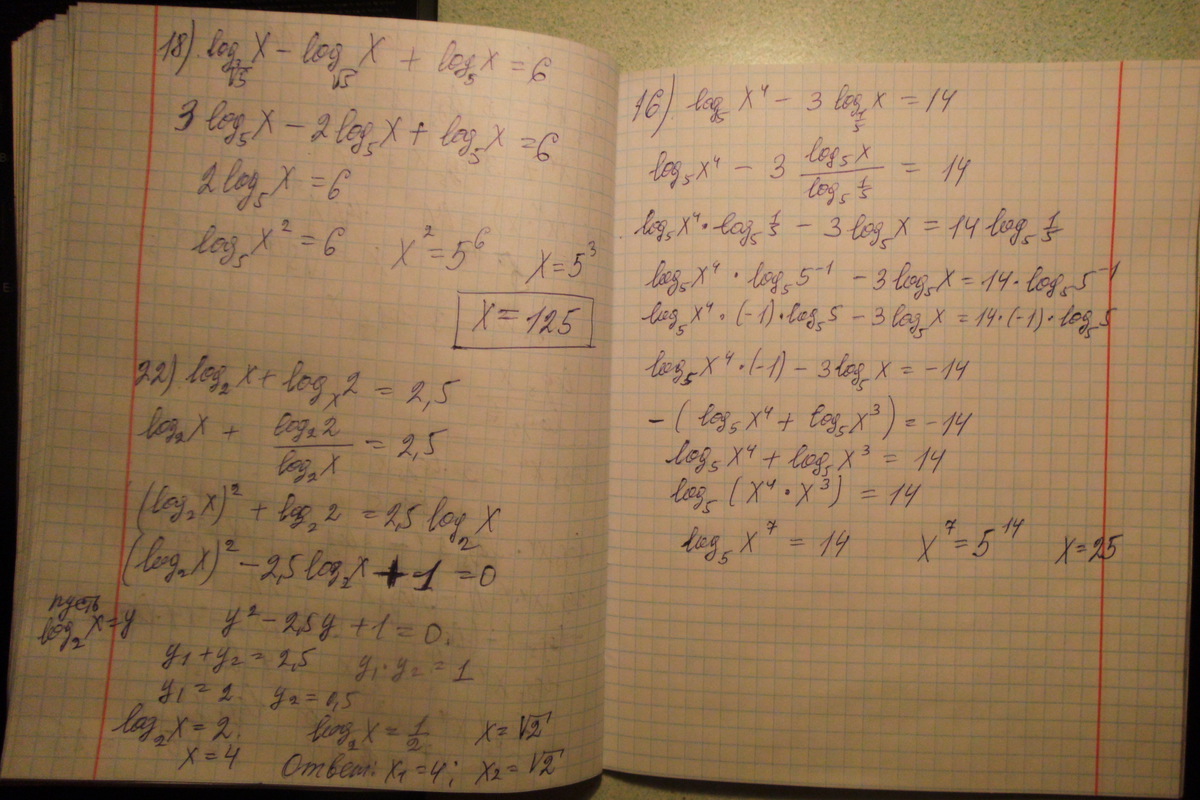 18) log_∛5 x - log_√5 x + log_5 x = 6
3 log_5 x - 2 log_5 x + log_5 x = 6
2 log_5 x = 6
log_5 x^2 = 6 x^2 = 5^6 x = 5^3
x = 125
22) log_2 x + log_x 2 = 2,5
log_2 x + (log_2 2)/(log_2 x) = 2,5
(log_2 x)^2 + log_2 2 = 2,5 log_2 x
(log_2 x)^2 - 2,5 log_2 x + 1 = 0
пусть
log_2 x = y y^2 - 2,5y + 1 = 0.
y_1 + y_2 = 2,5 y_1 · y_2 = 1
y_1 = 2 y_2 = 0,5
log_2 x = 2 log_2 x = 1/2 x = √2
x = 4 Ответ: x_1 = 4; x_2 = √2
16) log_5 x^4 - 3 log_1/5 x = 14
log_5 x^4 - 3 (log_5 x)/(log_5 1/5) = 14
log_5 x^4 · log_5 1/5 - 3 log_5 x = 14 log_5 1/5
log_5 x^4 · log_5 5^-1 - 3 log_5 x = 14 · log_5 5^-1
log_5 x^4 · (-1) · log_5 5 - 3 log_5 x = 14 · (-1) · log_5 5
log_5 x^4 · (-1) - 3 log_5 x = -14
-(log_5 x^4 + log_5 x^3) = -14
log_5 x^4 + log_5 x^3 = 14
log_5 (x^4 · x^3) = 14
log_5 x^7 = 14 x^7 = 5^14 x = 25